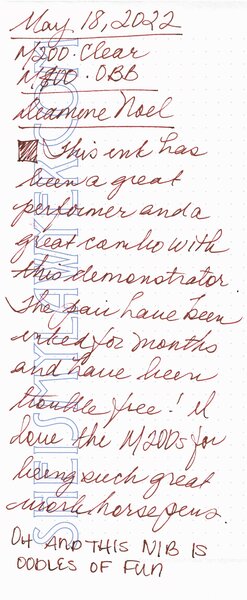 May 18, 2022
M200 · Clear
M400 · OBB
Diamine Noel
This ink has
been a great
performer and a
great combo with
this demonstrator.
The pair have been
inked for months
and have been
trouble free! I
love the M200s for
being such great
workhorse pens.
OH AND THIS NIB IS
OODLES OF FUN
SHEISMYLAWYER.COM